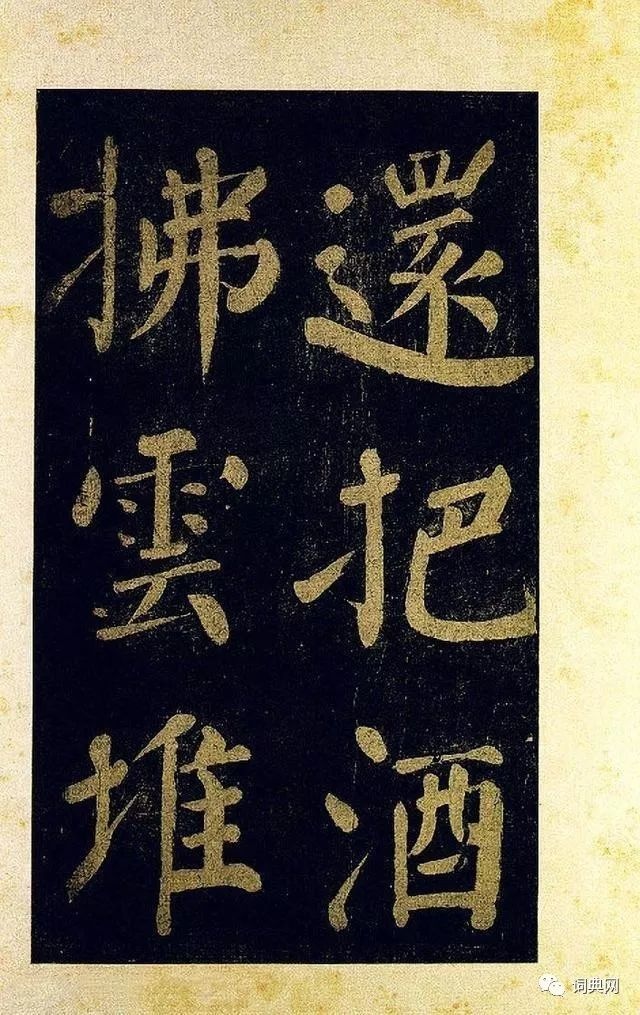 還把酒
拂雲堆
词典网